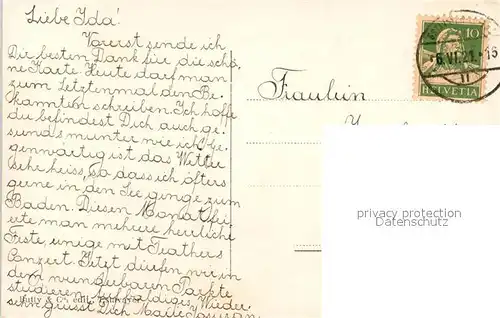 Liebe Ida!
Vorerst sende ich
Dir besten Dank für die schö-
ne Karte. Heute darf man
zum Letztenmal den Be-
kannten schreiben. Ich hoffe
du befindest Dich auch ge-
sund & munter wie ich. Ge-
genwärtig ist das Wetter
sehr heiss, so dass ich öfters
gerne in den See ginge zum
Baden. Diesen Monat fei-
erte man mehrere herrliche
Feste, unige mit
Conzert. Jetzt dürfen wir in
dem wunderbaren Parkte
studieren. Auf baldiges Wieder
sehn grüsst Dich
Butty & Cie, edit., Estavayer
Fräulein
10
HELVETIA
6.VI.21.15
privacy protection
Datenschutz